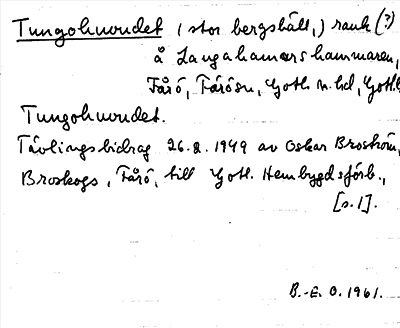 Tungohuvudet (stor bergshäll,) rauk (?)
å Langahamarshammaren,
Fårö, Fårösu, Gotl. n. hd, Gotl.
Tungohuvudet.
Tävlingsbidrag 26.2.1949 av Oskar Broström,
Broskogs, Fårö, till Gotl. Hembygdsförb.,
[s. 1].
B.-E. O. 1961.